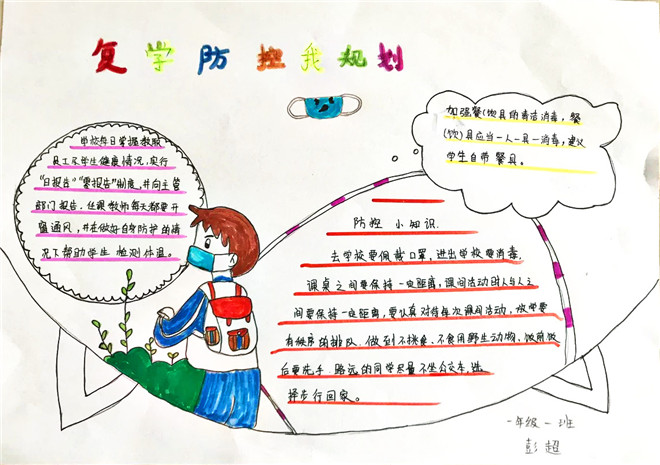 复学防控我规划
学校每日掌握教职
员工及学生健康情况，实行
"日报告""零报告"制度，并向主管
部门报告。任课教师每天都要开
窗通风，并在做好自身防护的情
况下帮助学生检测体温。
加强餐(饮)具的清洁消毒，餐
(饮)具应当一人一具一消毒，建议
学生自带餐具。
防控小知识.
去学校要佩戴口罩，进出学校要消毒.
课桌之间要保持一定距离，课间活动时人与人之
间要保持一定距离，要认真对待每次课间活动，放学要
有秩序的排队.做到不挑食，不食用野生动物，饭前饭
后要洗手.路远的同学尽量不坐公交车，选
择步行回家。
一年级一班
彭超